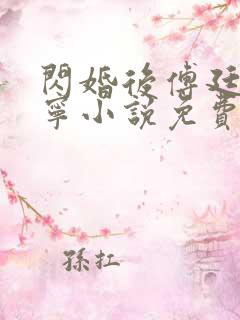 閃婚後傅廷
寧小說免費
孫扛